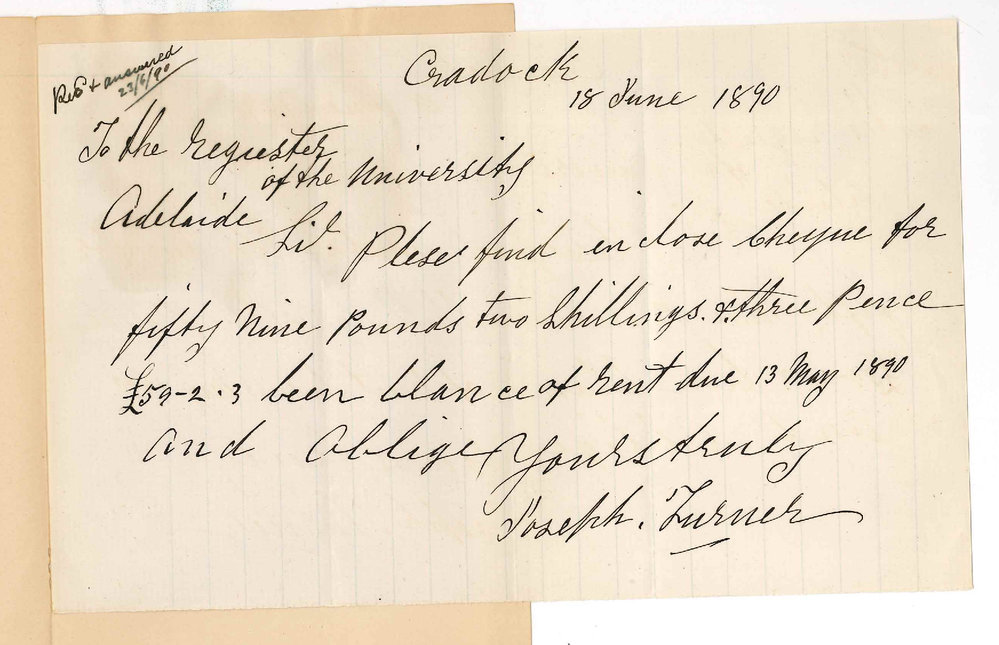 Recd & answered
23/6/90
Cradock
18 June 1890
To the Regiester
of the University
Adelaide
Sir. Plese find enclose Cheque for
fifty Nine Pounds two Shillings. & three Pence
£59-2.3 been blance of rent due 13 May 1890
and Oblige Yours truly
Joseph. Turner